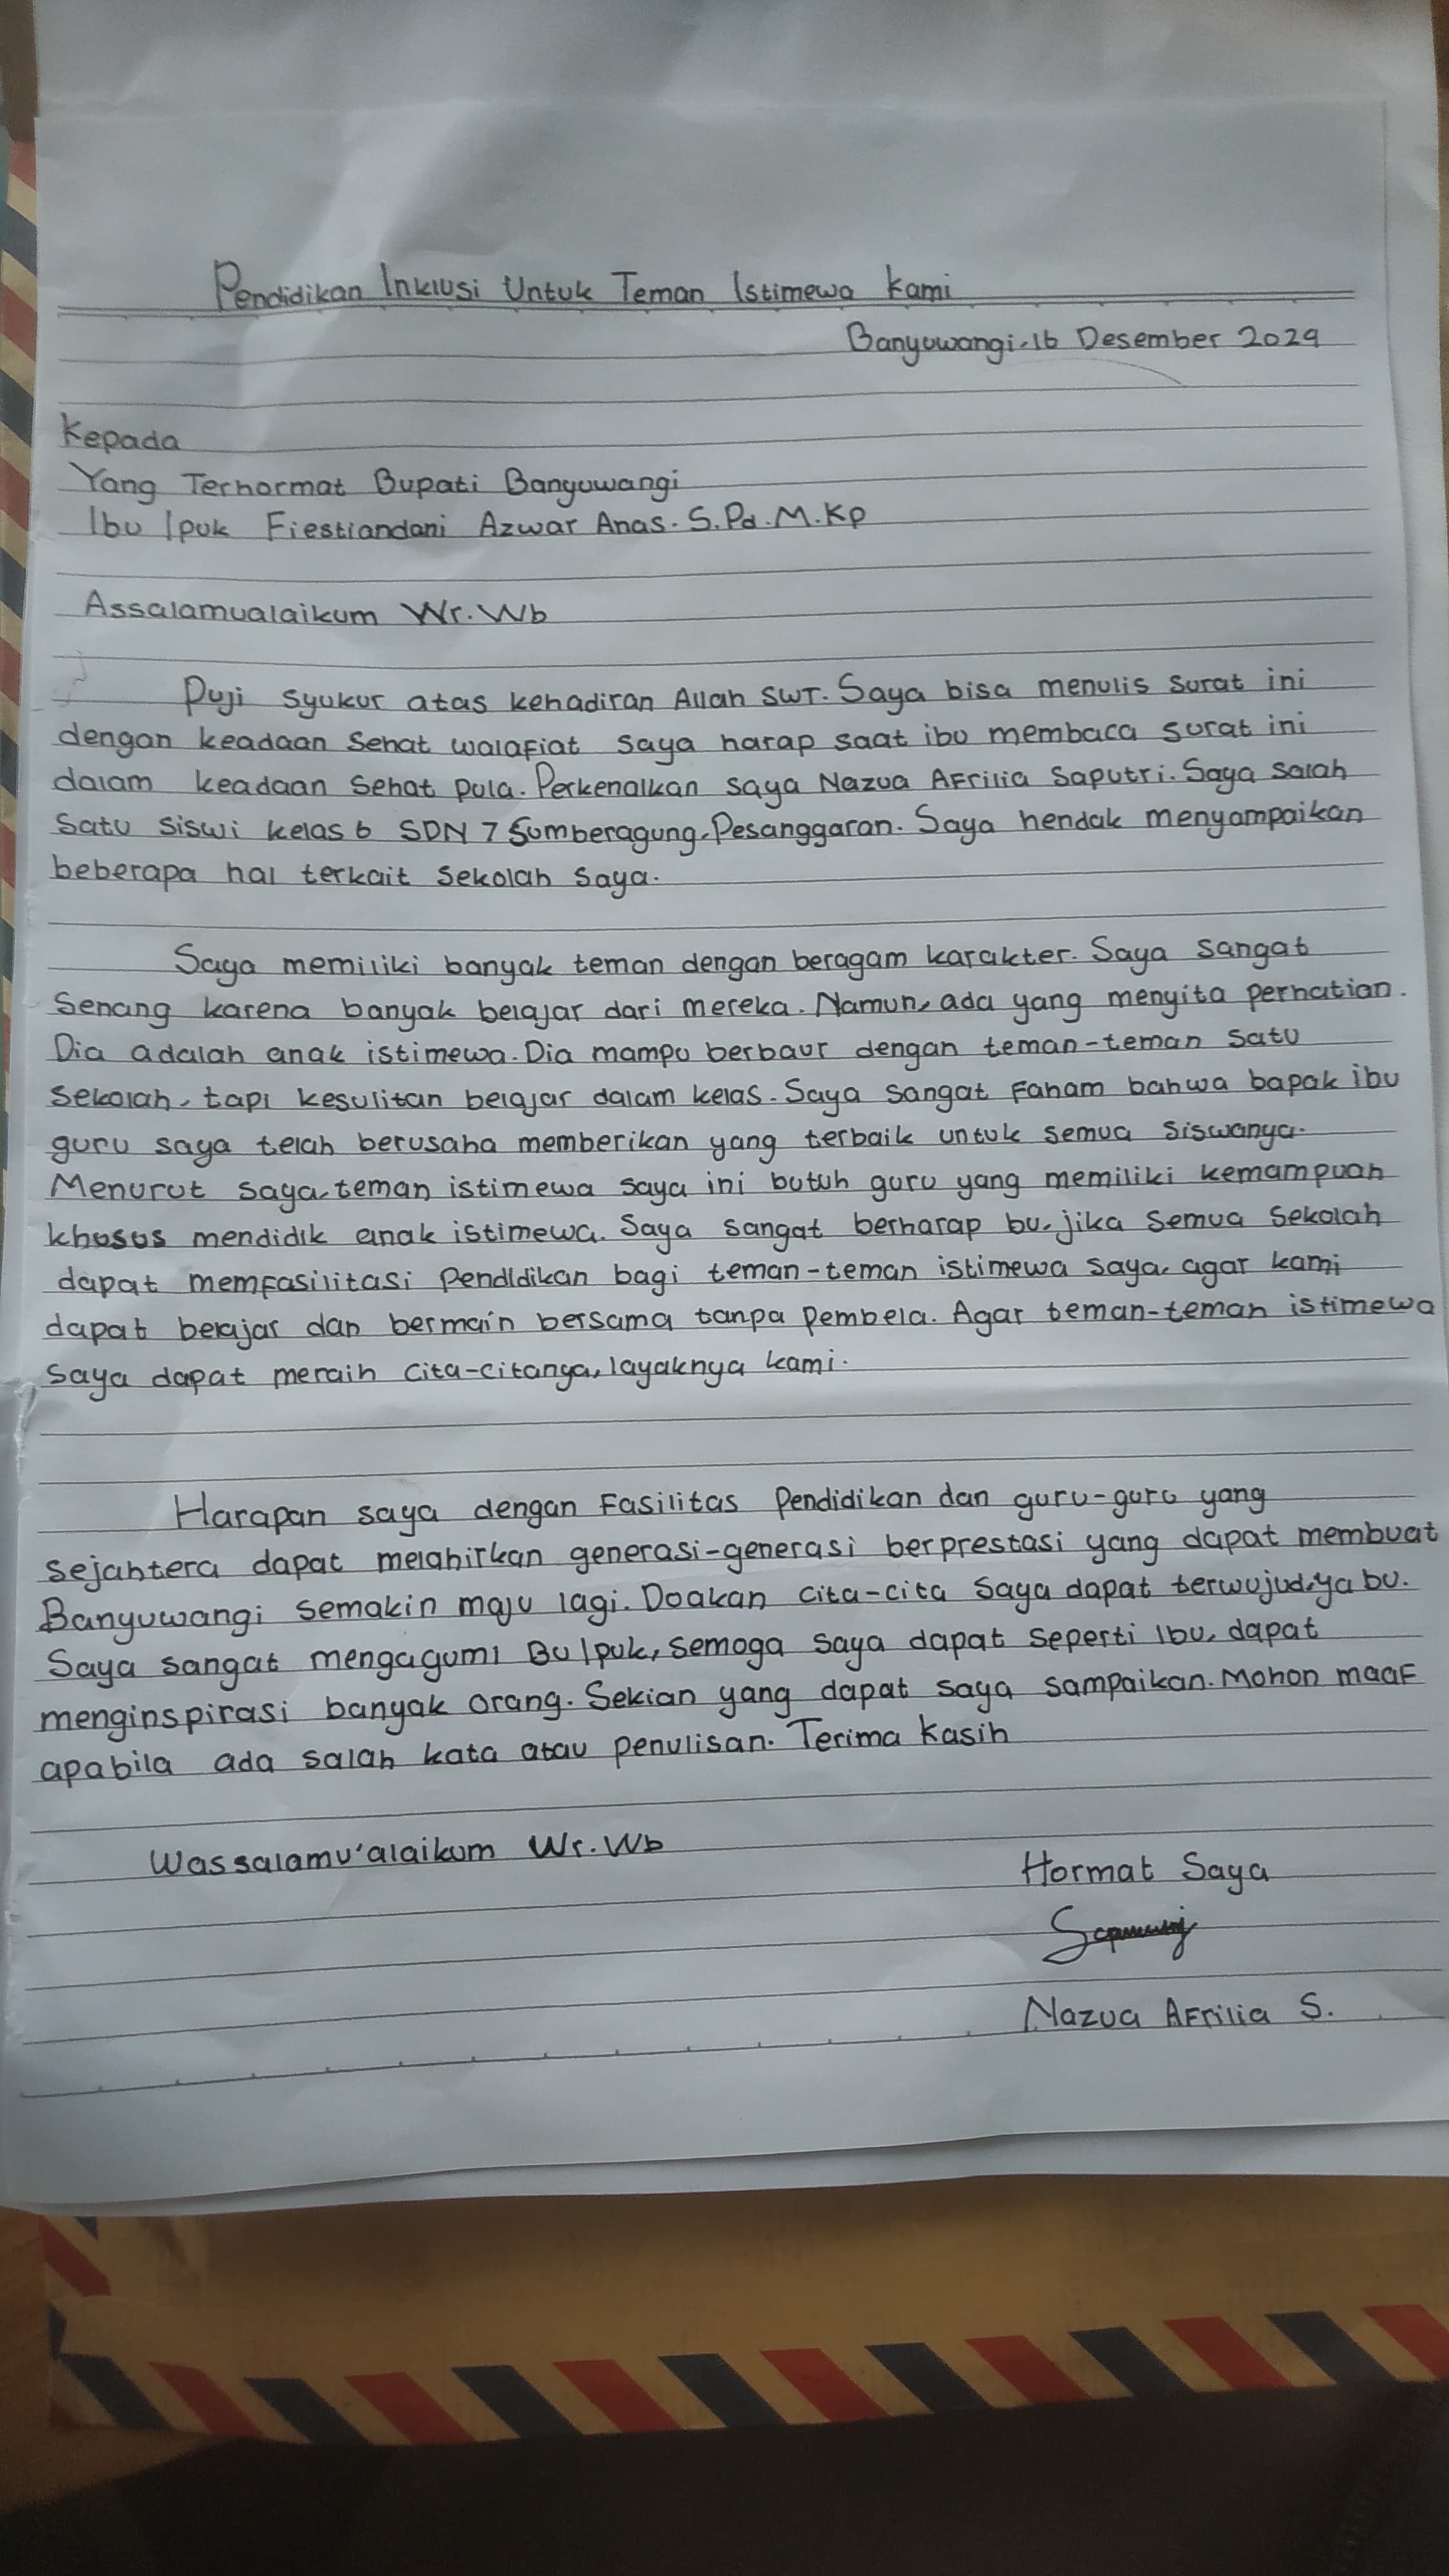 Pendidikan Inklusi Untuk Teman Istimewa Kami
Banyuwangi, 16 Desember 2024
Kepada
Yang Terhormat Bupati Banyuwangi
Ibu Ipuk Fiestiandani Azwar Anas. S.Pd. M.KP
Assalamualaikum Wr. Wb
Puji syukur atas kehadiran Allah SWT. Saya bisa menulis surat ini
dengan keadaan sehat walafiat saya harap saat ibu membaca surat ini
dalam keadaan sehat pula. Perkenalkan saya Nazua Afrilia Saputri. Saya salah
satu siswi kelas 6 SDN 7 Sumberagung, Pesanggaran. Saya hendak menyampaikan
beberapa hal terkait sekolah saya.
Saya memiliki banyak teman dengan beragam karakter. Saya sangat
senang karena banyak belajar dari mereka. Namun, ada yang menyita perhatian.
Dia adalah anak istimewa. Dia mampu berbaur dengan teman-teman satu
sekolah, tapi kesulitan belajar dalam kelas. Saya sangat faham bahwa bapak ibu
guru saya telah berusaha memberikan yang terbaik untuk semua siswanya.
Menurut saya, teman istimewa saya ini butuh guru yang memiliki kemampuan
khusus mendidik anak istimewa. Saya sangat berharap bu, jika semua sekolah
dapat memfasilitasi pendidikan bagi teman-teman istimewa saya, agar kami
dapat belajar dan bermain bersama tanpa pembela. Agar teman-teman istimewa
saya dapat meraih cita-citanya, layaknya kami.
Harapan saya dengan fasilitas pendidikan dan guru-guru yang
sejahtera dapat melahirkan generasi-generasi berprestasi yang dapat membuat
Banyuwangi semakin maju lagi. Doakan cita-cita saya dapat terwujud, ya bu.
Saya sangat mengagumi Bu Ipuk, semoga saya dapat seperti Ibu, dapat
menginspirasi banyak orang. Sekian yang dapat saya sampaikan. Mohon maaf
apabila ada salah kata atau penulisan. Terima kasih
Wassalamu'alaikum Wr. Wb
Hormat Saya
Nazua Afrilia S.